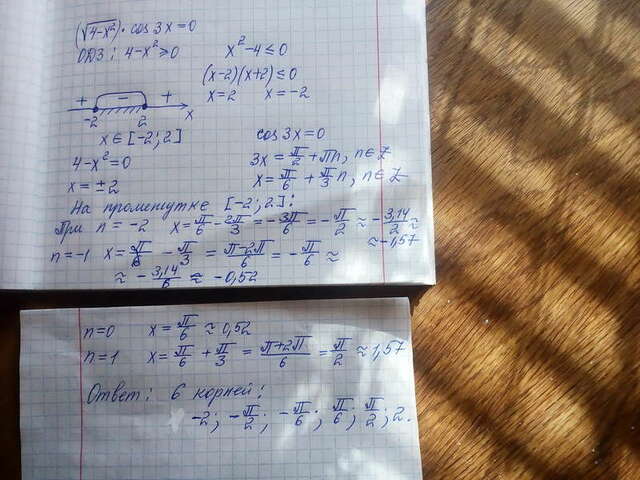 (√4-x²) · cos 3x = 0
ОДЗ: 4-x² ≥ 0   x²-4 ≤ 0
(x-2)(x+2) ≤ 0
x=2   x=-2
+ - +
-2 2 x
x ∈ [-2; 2]   cos 3x = 0
4-x² = 0   3x = π/2 + πn, n ∈ Z
x = ±2   x = π/6 + π/3 n, n ∈ Z
На промежутке [-2; 2]:
При n = -2   x = π/6 - 2π/3 = -3π/6 = -π/2 ≈ -3,14/2 ≈
≈ -1,57
n=-1   x = π/6 - π/3 = π-2π/6 = -π/6 ≈
≈ -3,14/6 ≈ -0,52
n=0   x = π/6 ≈ 0,52
n=1   x = π/6 + π/3 = π+2π/6 = π/2 ≈ 1,57
Ответ: 6 корней:
-2; -π/2; -π/6; π/6; π/2; 2.